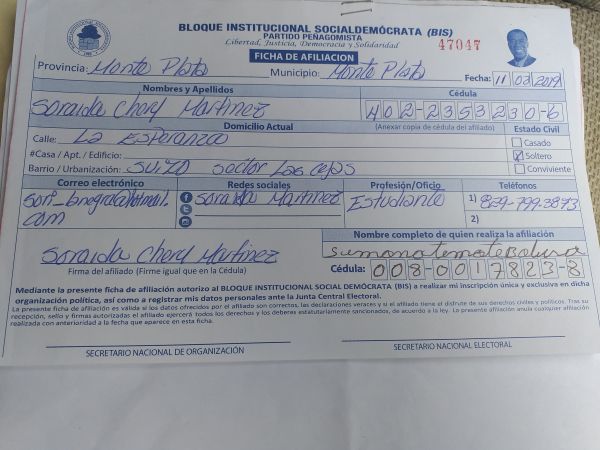 BLOQUE INSTITUCIONAL SOCIALDEMÓCRATA (BIS)
PARTIDO PEÑAGOMISTA
Libertad, Justicia, Democracia y Solidaridad
47047
FICHA DE AFILIACION
Provincia: Monte Plata Municipio: Monte Plata Fecha: 11/02/2019
Nombres y Apellidos Cédula
Soraida Chery Martinez 402-2353230-6
Domicilio Actual (Anexar copia de cédula del afiliado) Estado Civil
Calle: La Esperanza Casado
#Casa / Apt. / Edificio: Soltero
Barrio / Urbanización: sector Las Conviviente
Correo electrónico Redes sociales Profesión/Oficio Teléfonos
Soraida Martinez Estudiante 1) 829-799-3873
com 2)
Nombre completo de quien realiza la afiliación
Soraida Chery Martinez
Firma del afiliado (Firme igual que en la Cédula) Cédula: 008-0017823-8
Mediante la presente ficha de afiliación autorizo al BLOQUE INSTITUCIONAL SOCIAL DEMÓCRATA (BIS) a realizar mi inscripción única y exclusiva en dicha
organización política, así como a registrar mis datos personales ante la Junta Central Electoral.
La presente ficha de afiliación es válida si los datos ofrecidos por el afiliado son correctos, las declaraciones veraces y si el afiliado tiene el disfrute de sus derechos civiles y políticos. Tras su
recepción, sello y firmas autorizadas el afiliado ejercerá todos los derechos y los deberes estatutariamente sancionados, de acuerdo a la ley. La presente afiliación anula cualquier afiliación
realizada con anterioridad a la fecha que aparece en esta ficha.
SECRETARIO NACIONAL DE ORGANIZACIÓN SECRETARIO NACIONAL ELECTORAL